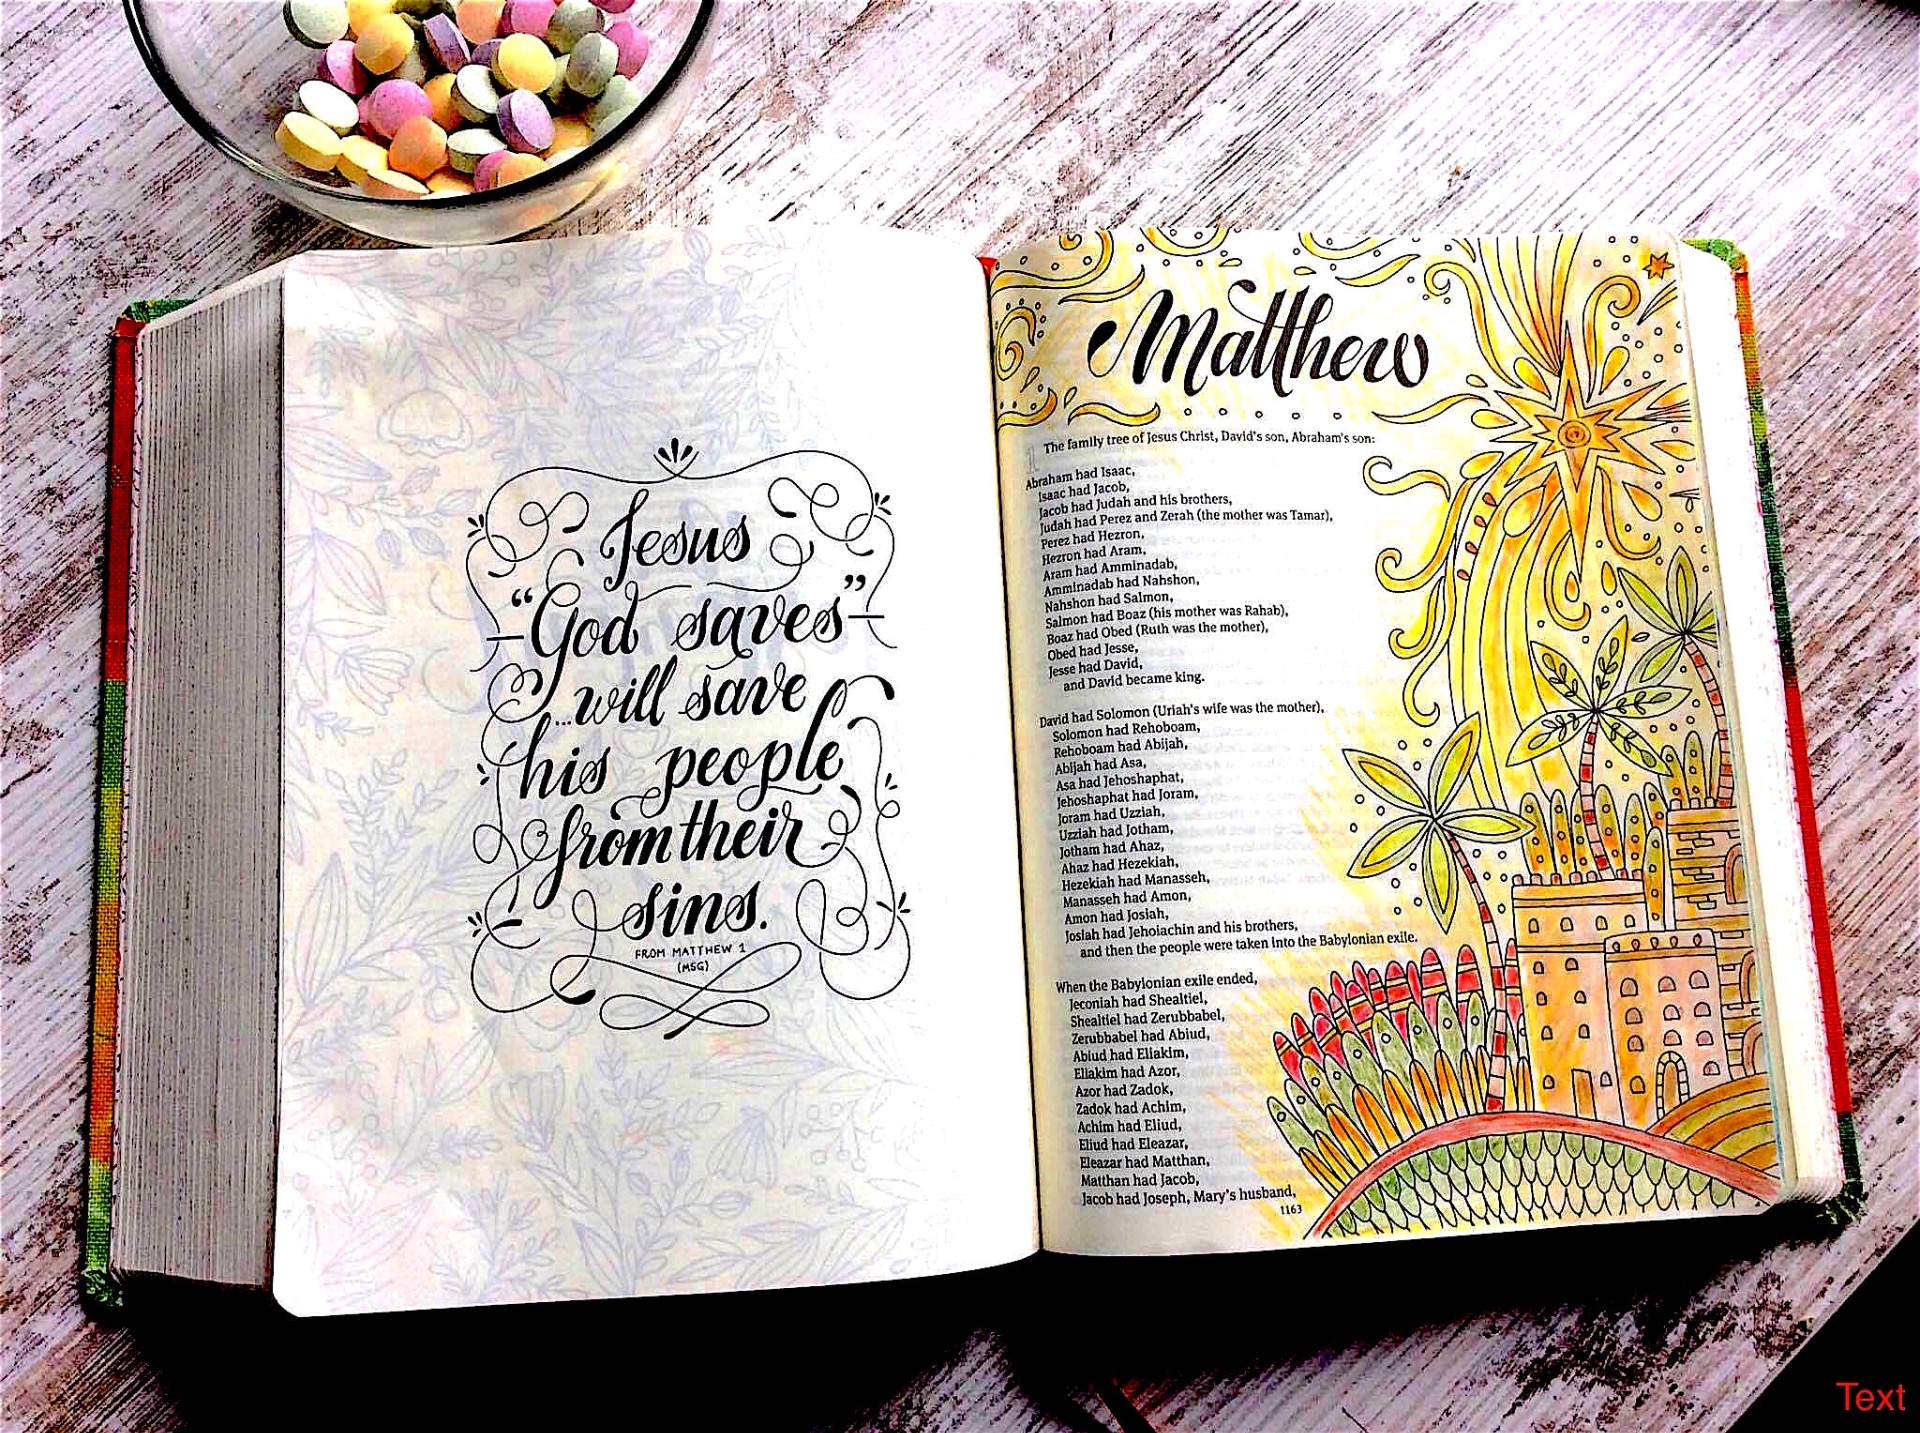 Jesus
"God saves"
...will save
his people
from their
sins.
FROM MATTHEW 1
(MSG)
Matthew
1 The family tree of Jesus Christ, David's son, Abraham's son:
Abraham had Isaac,
Isaac had Jacob,
Jacob had Judah and his brothers,
Judah had Perez and Zerah (the mother was Tamar),
Perez had Hezron,
Hezron had Aram,
Aram had Amminadab,
Amminadab had Nahshon,
Nahshon had Salmon,
Salmon had Boaz (his mother was Rahab),
Boaz had Obed (Ruth was the mother),
Obed had Jesse,
Jesse had David,
and David became king.
David had Solomon (Uriah's wife was the mother),
Solomon had Rehoboam,
Rehoboam had Abijah,
Abijah had Asa,
Asa had Jehoshaphat,
Jehoshaphat had Joram,
Joram had Uzziah,
Uzziah had Jotham,
Jotham had Ahaz,
Ahaz had Hezekiah,
Hezekiah had Manasseh,
Manasseh had Amon,
Amon had Josiah,
Josiah had Jehoiachin and his brothers,
and then the people were taken into the Babylonian exile.
When the Babylonian exile ended,
Jeconiah had Shealtiel,
Shealtiel had Zerubbabel,
Zerubbabel had Abiud,
Abiud had Eliakim,
Eliakim had Azor,
Azor had Zadok,
Zadok had Achim,
Achim had Eliud,
Eliud had Eleazar,
Eleazar had Matthan,
Matthan had Jacob,
Jacob had Joseph, Mary's husband,
1163
Text